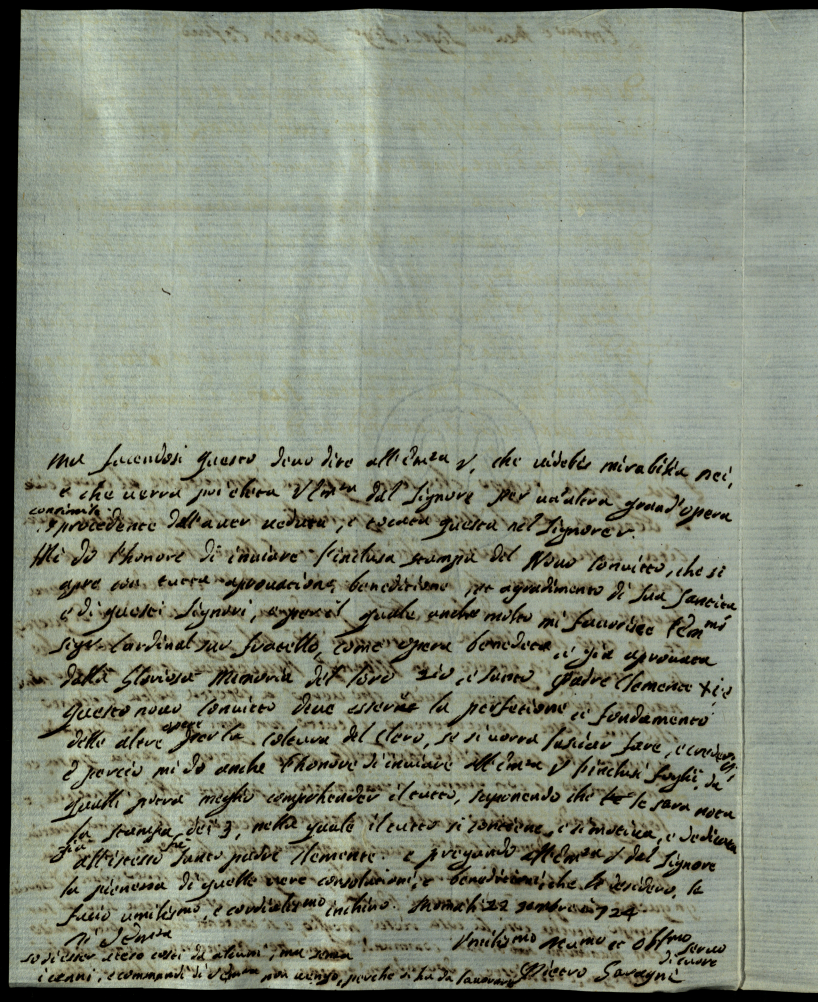 ma facendosi questo devo dire all'Em.za V. che videbis mirabilia Dei,
e che verra poi eletta V Em.za dal Signore per un'altra grand'opera
consimile
procedente dall'aver veduta, e toccata questa nel Signore
Mi do l'honore di inviare l'inclusa stampa del Novo Convitto, che si
apre con tutta approvacione, benedicione agradimento di Sua Santita
e di questi Signori, e per il quale anche molto mi favorisce l'Em.mo
Sig.r Cardinal suo fratello, come opera benedetta, e gia aprovata
dalla Gloriosa Memoria del loro Zio, e santo Padre Clemente XI: e
questo novo Convitto deve esserne la perfecione et fondamento
delle altre opere per la Coltura del Clero, se si vorra lasciar fare, e
e percio mi do anche l'honore di inviare all'Em.za V l'inclusi fogli, da
quali potra meglio comprhender il tutto, suponendo che le sara nota
la stampa dei 3, nella quale il tutto si contiene, e si motiva, e dedicata
gia fu
all'istesso Santo padre Clemente. e pregando all'Em.za V dal Signore
la pienessa di quelle vere consolacioni, e benedicioni, che le desidero, le
facio umilis.mo, e cordialis.mo inchino. Roma li 22 1724
Di V Em.za
Umilis.mo et Obl.mo servo
di cuore
so di esser atteso costi da alcuni, ma senza
i cenni, e commandi di V Em.za non vengo, perche si ha da lavorare
Pietro